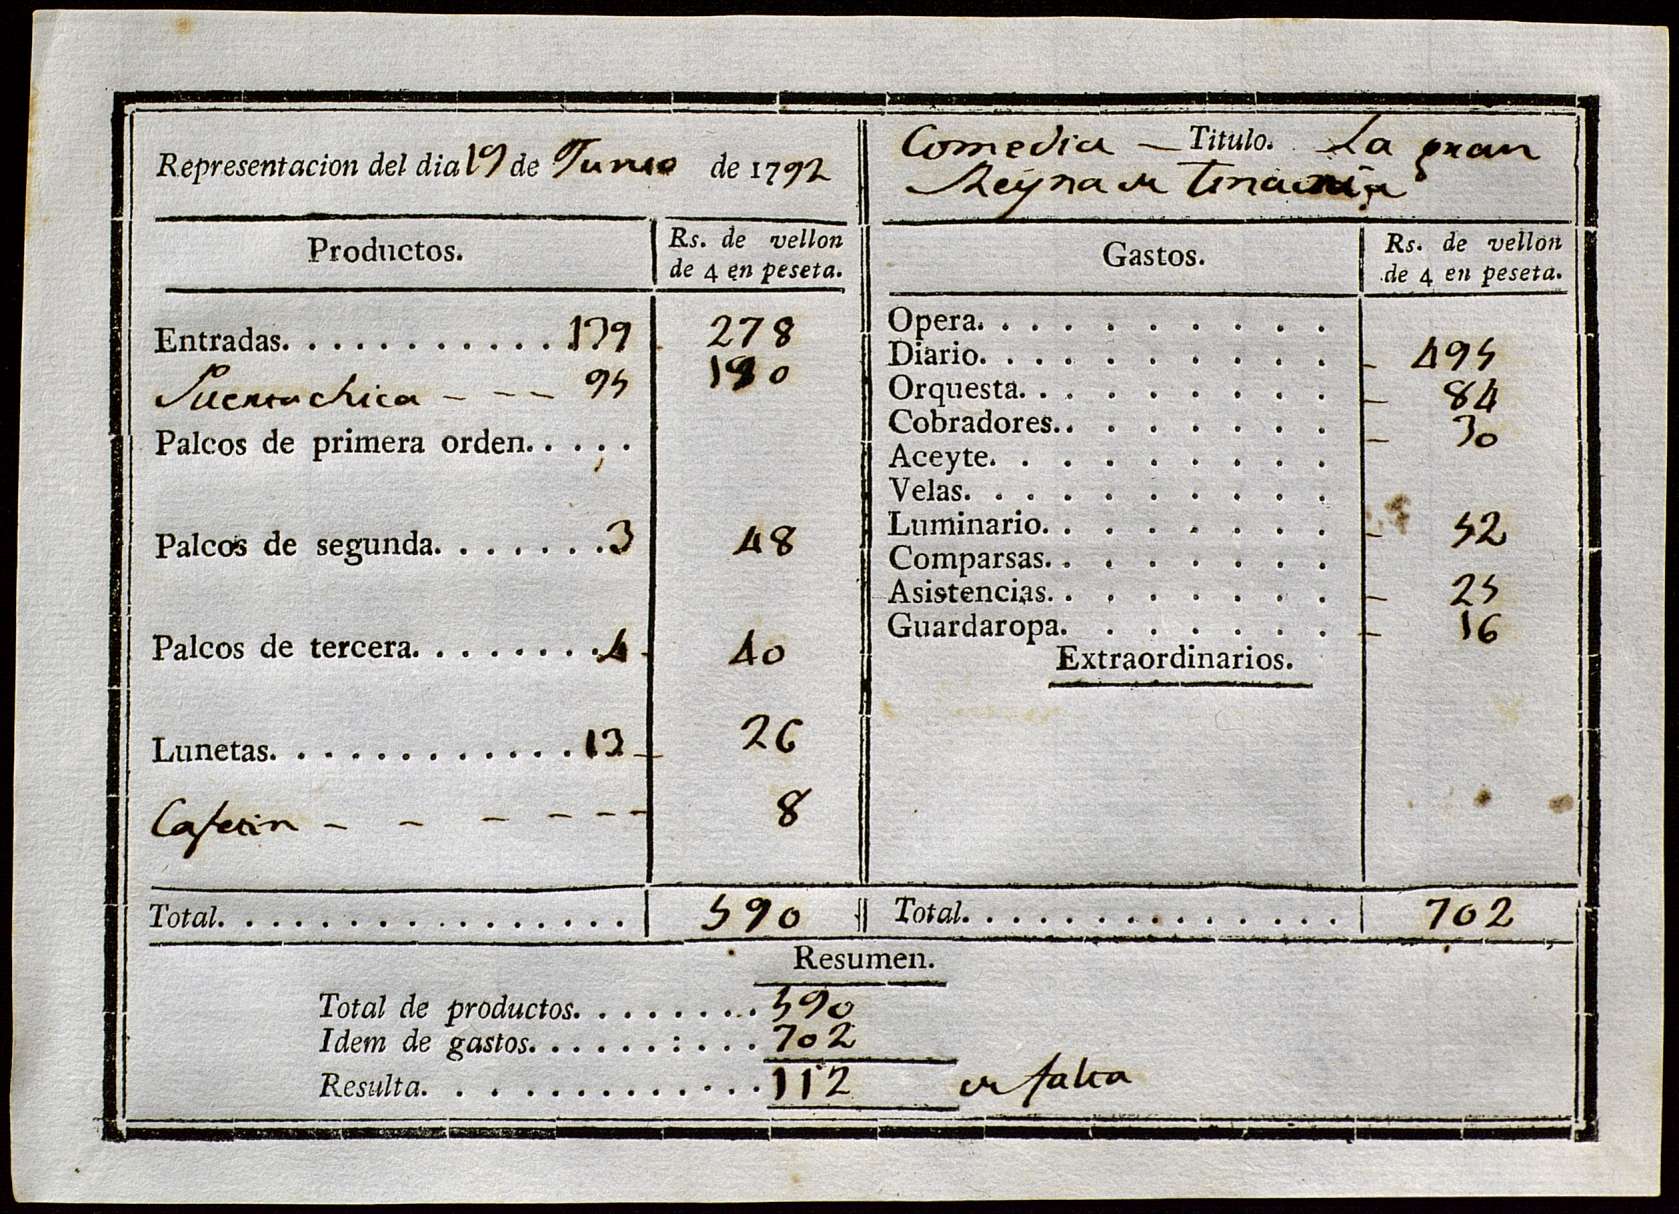 Representacion del dia 19 de Junio de 1792
Comedia — Titulo. La gran
Reyna de Tinacria
Productos.
Rs. de vellon
de 4 en peseta.
Gastos.
Rs. de vellon
de 4 en peseta.
Entradas. . . . . . . . . . . . 139 278
Puerta chica - - - - 95 190
Palcos de primera orden. . . . .
Palcos de segunda. . . . . . . . 3 48
Palcos de tercera. . . . . . . . . 4 40
Lunetas. . . . . . . . . . . . 13 26
Cafetin - - - - - - 8
Total. . . . . . . . . . . . . . . . 590
Opera. . . . . . . . . .
Diario. . . . . . . . . . 495
Orquesta. . . . . . . . . 84
Cobradores. . . . . . . . 30
Aceyte. . . . . . . . . .
Velas. . . . . . . . . . .
Luminario. . . . . . . . . 52
Comparsas. . . . . . . . .
Asistencias. . . . . . . . 25
Guardaropa. . . . . . . . 16
Extraordinarios.
Total. . . . . . . . . . . . . . . 702
Resumen.
Total de productos. . . . . . . . . 590
Idem de gastos. . . . . . : . . . . 702
Resulta. . . . . . . . . . . . . . 112 de falta